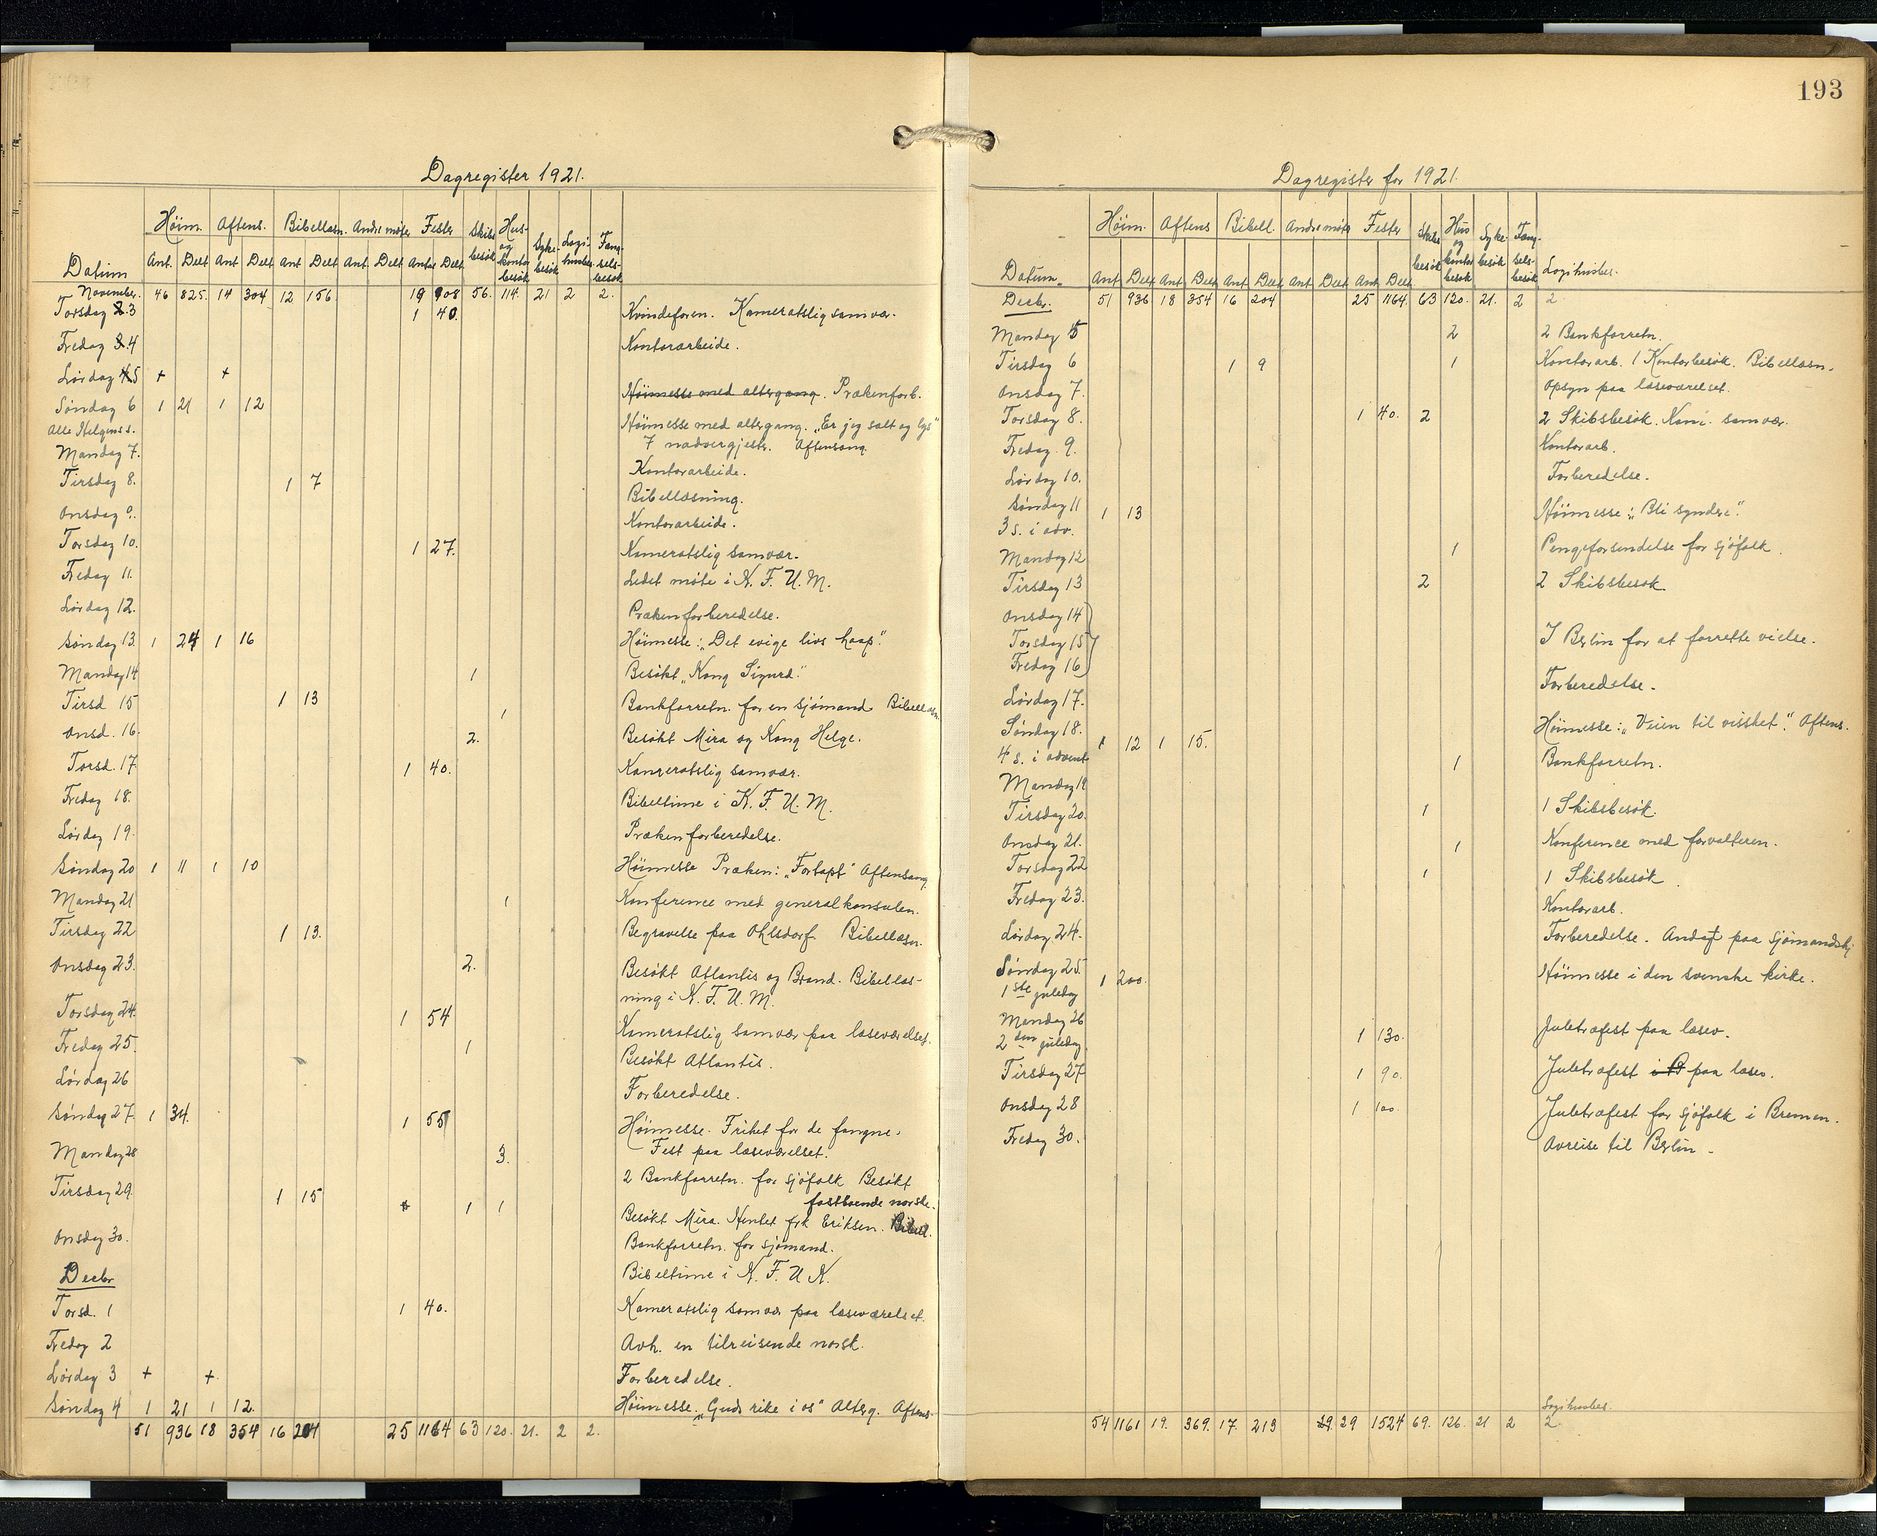 Dagregister 1921.
Høim. Aftens. Bibellæsn. Andre møter Fester Skibs besøk Hus- og kontor besøk Syke- besøk Logi- husbes. Fæng- sels- besøk
Datum Ant. Delt Ant Delt Ant Delt Ant. Delt Antal Delt.
November. 46 825. 14 304 12 156. 19 908 56. 114. 21 2 2.
Torsdag 3 1 40. Kvindeforen. Kameratslig samvær.
Fredag 4 Kontorarbeide.
Lørdag 5 + +
Høimesse med altergang. Prækenforb.
Søndag 6 1 21 1 12
Alle Helgens s. Høimesse med altergang. „Er jeg salt og lys"
7 nadvergjester. Aftensang.
Mandag 7. Kontorarbeide.
Tirsdag 8. 1 7 Bibellæsning.
Onsdag 9. Kontorarbeide.
Torsdag 10. 1 27. Kameratslig samvær.
Fredag 11. Ledet møte i K. F. U. M.
Lørdag 12. Prækenforberedelse.
Søndag 13. 1 24 1 16 Høimesse: „Det evige livs haap".
Mandag 14 1 Besøkt „Kong Sigurd".
Tirsd 15 1 13 1 Bankforretn. for en sjømand Bibellæsn.
Onsd. 16. 2. Besøkt Mira og Kong Helge.
Torsd. 17 1 40. Kameratslig samvær.
Fredag 18. Bibeltime i K. F. U. M.
Lørdag 19. Prækenforberedelse.
Søndag 20 1 11 1 10 Høimesse Præken: „Fortapt" Aftensang
Mandag 21 1 Konference med generalkonsulen.
Tirsdag 22 1 13. Begravelse paa Ohlsdorf Bibellæsn.
Onsdag 23. 2. Besøkt Atlantis og Brand. Bibellæs-
ning i K. F. U. M.
Torsdag 24. 1 54 Kameratslig samvær paa læseværelset.
Fredag 25. 1 Besøkt Atlantis.
Lørdag 26 Forberedelse.
Søndag 27. 1 34. 1 55 Høimesse. Frihet for de fangne.
Fest paa læseværelset.
Mandag 28 3. 2 Bankforretn. for sjøfolk Besøkt
fastboende norske.
Tirsdag 29. 1 15 1 1 Besøkt Mira. Hentet frk Eriksen. Bibell.
Onsdag 30. Bankforretn. for sjømand.
Decbr Bibeltime i K. F. U. K.
Torsd. 1 1 40. Kameratslig samvær paa læseværelset.
Fredag 2 Avh. en tilreisende norsk.
Lørdag 3 + +. Forberedelse.
Søndag 4 1 21 1 12. Høimesse. „Guds rike i os" Alterg. Aftens.
51 936 18 354 16 204 25 1164 63 120. 21. 2 2.
193
Dagregister for 1921.
Høim. Aftens Bibell. Andre møter Fester Skibs besøk Hus og kontor besøk Syke- besøk Fæng- sels- besøk Logihusbes.
Datum Ant Delt Ant Delt Ant Delt Ant Delt Ant Delt
Decbr. 51 936 18 354 16 204 25 1164. 63 120. 21. 2 2
Mandag 5 2 2 Bankforretn.
Tirsdag 6 1 9 1 Kontorarb. 1 Kontorbesøk. Bibellæsn.
Onsdag 7. Opsyn paa læseværelset.
Torsdag 8. 1 40. 2 2 Skibsbesøk. Kam. samvær.
Fredag 9. Kontorarb.
Lørdag 10. Forberedelse.
Søndag 11 1 13 Høimesse: „Bli syndere".
3 s. i adv.
Mandag 12 1 Pengeforsendelse for sjøfolk.
Tirsdag 13 2 2 Skibsbesøk
Onsdag 14
Torsdag 15 I Berlin for at forrette vielse.
Fredag 16
Lørdag 17. Forberedelse.
Søndag 18. 1 12 1 15. Høimesse: „Veien til visshet". Aftens.
4 s. i advent
Mandag 19 1 Bankforretn.
Tirsdag 20. 1 1 Skibsbesøk
Onsdag 21. 1 Konference med forvalteren.
Torsdag 22 1 1 Skibsbesøk
Fredag 23. Kontorarb.
Lørdag 24. Forberedelse. Andagt paa Sjømandshj.
Søndag 25. 1 200. Høimesse i den svenske kirke.
1ste juledag
Mandag 26 1 130. Juletræfest paa læsev.
2den juledag
Tirsdag 27 1 90. Juletræfest paa læsev.
Onsdag 28 1 100. Juletræfest for sjøfolk i Bremen.
Fredag 30. Avreise til Berlin.
Logihusbes.
54 1161 19. 369. 17. 213 29. 29 1524 69. 126. 21 2 2